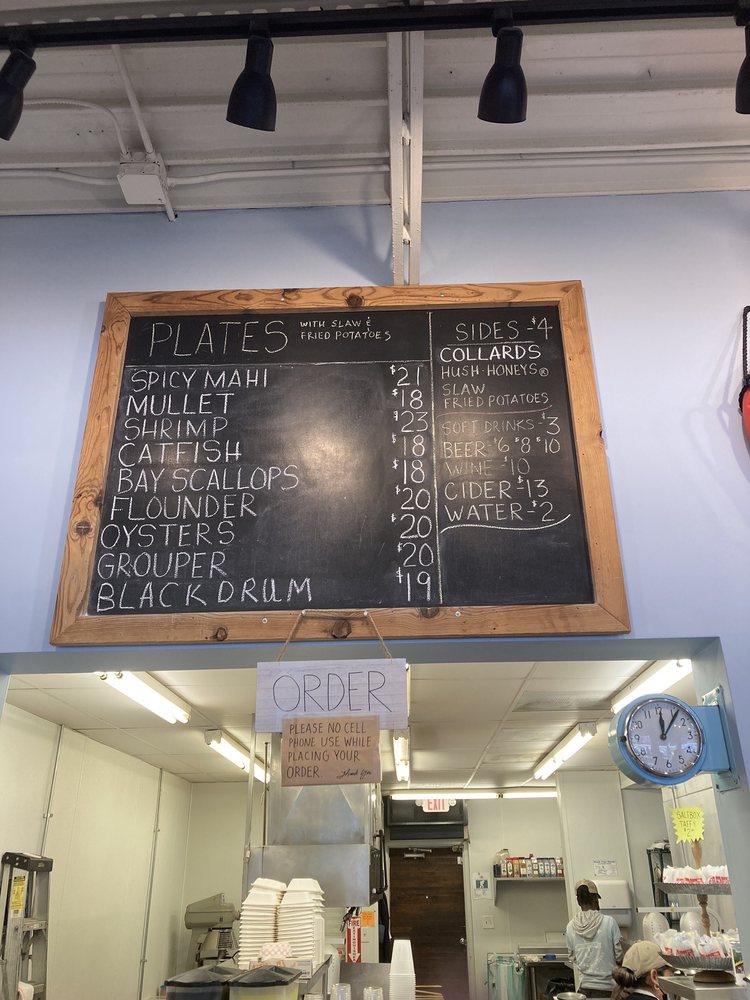 PLATES WITH SLAW &
FRIED POTATOES
SPICY MAHI $21
MULLET $18
SHRIMP $23
CATFISH $18
BAY SCALLOPS $18
FLOUNDER $20
OYSTERS $20
GROUPER $20
BLACK DRUM $19
SIDES - $4
COLLARDS
HUSH-HONEYS®
SLAW
FRIED POTATOES
SOFT DRINKS - $3
BEER - $6 $8 $10
WINE - $10
CIDER - $13
WATER - $2
ORDER
PLEASE NO CELL
PHONE USE WHILE
PLACING YOUR
ORDER.
EXIT
SALTBOX
TAFFY
$2
FIRE